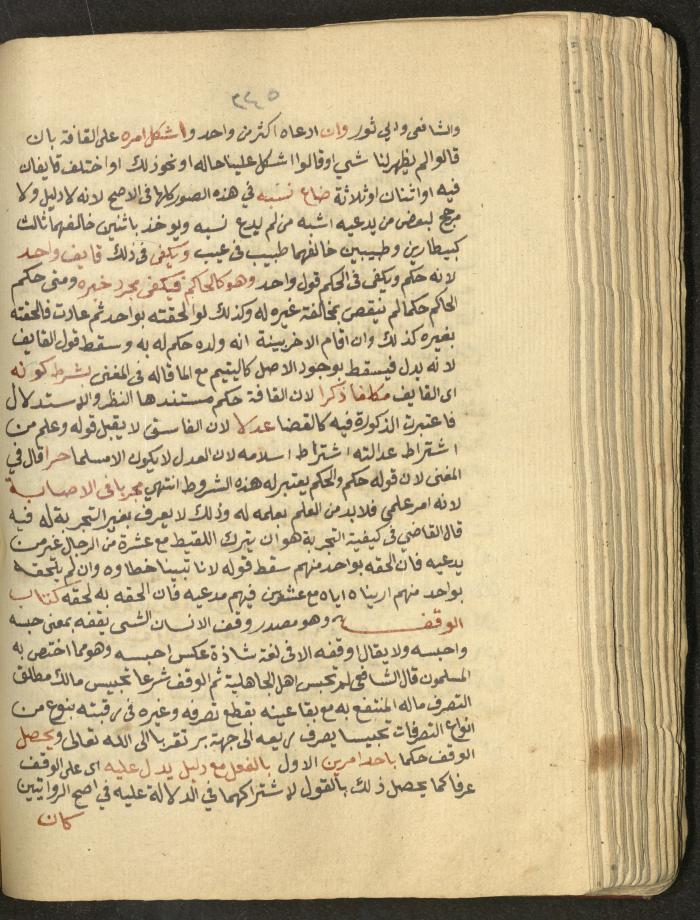 ٢٤٥
والشافعي وابي ثور وان ادعاه اكثر من واحد واشكل امره على القافة بان
قالوا لم يظهر لنا شي او قالوا اشكل علينا حاله او نحو ذلك او اختلف قايفان
فيه او اثنان او ثلاثة ضاع نسبه في هذه الصور كلها في الاصح لانه لا دليل ولا
مرجح لبعض من يدعيه اشبه من لم يدع نسبه ويوخذ باثنين خالفهما ثالث
كبيطارين وطبيبين خالفهما طبيب في عيب ويكفى في ذلك قايف واحد
لانه حكم ويكفى في الحكم قول واحد وهو كالحاكم فيكفى مجرد خبره ومتى حكم
الحاكم حكما لم ينقض بمخالفة غيره له وكذلك لو الحقته بواحد ثم عادت فالحقته
بغيره كذلك وان اقام الاخر بينة انه ولده حكم له به وسقط قول القايف
لانه بدل فيسقط بوجود الاصل كالتيمم مع الما قاله في المغنى بشرط كونه
اى القايف مكلفا ذكرا لان القافة حكم مستندها النظر والاستدلال
فاعتبرت الذكورة فيه كالقضا عدلا لان الفاسق لا يقبل قوله وعلم من
اشتراط عدالته اشتراط اسلامه لان العدل لا يكون الا مسلما حرا قال في
المغنى لان قوله حكم والحكم يعتبر له هذه الشروط انتهى مجربا في الاصابة
لانه امر علمي فلا بد من العلم بعلمه له وذلك لا يعرف بغير التجربة له فيه
قال القاضي في كيفية التجربة هو ان يترك اللقيط مع عشرة من الرجال غير من
يدعيه فان الحقه بواحد منهم سقط قوله لانا تبينا خطاوه وان لم يلحقه
بواحد منهم اريناه اياه مع عشرين فيهم مدعيه فان الحقه به لحقه كتاب
الوقف وهو مصدر وقف الانسان الشى يقفه بمعنى حبسه
واحبسه ولا يقال اوقفه الا في لغة شاذة عكس احبسه وهو مما اختص به
المسلمون قال الشافعي لم تحبس اهل الجاهلية ثم الوقف شرعا تحبيس مالك مطلق
التصرف ماله المنتفع به مع بقا عينه بقطع تصرفه وغيره في رقبته بنوع من
انواع التصرفات تحبيسا يصرف ريعه الى جهة بر تقربا الى الله تعالى ويحصل
الوقف حكما باحد امرين الاول بالفعل مع دليل يدل عليه اى على الوقف
عرفا كما يحصل ذلك بالقول لاشتراكهما في الدلالة عليه في اصح الروايتين
كان